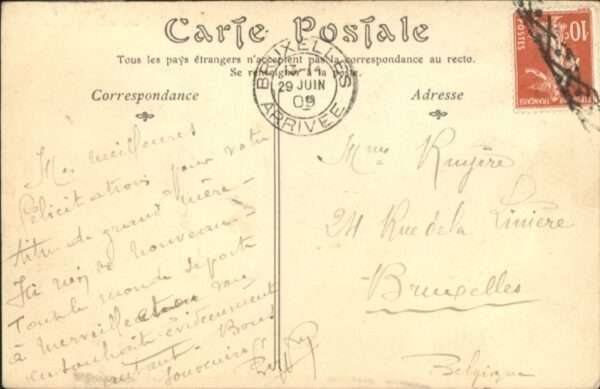 Carte Postale
Tous les pays étrangers n'acceptent pas la correspondance au recto.
Se renseigner à la poste.
Correspondance
Adresse
BRUXELLES
29 JUIN
09
ARRIVÉE
10c
POSTES
Mes meilleures
félicitations pour votre
titre de grand'mère -
Ici rien de nouveau -
Tout le monde se porte
à merveille et on vous
en souhaite évidemment
autant - Bons
souvenirs
Mme Ruyère
211 Rue de la Linière
Bruxelles
Belgique